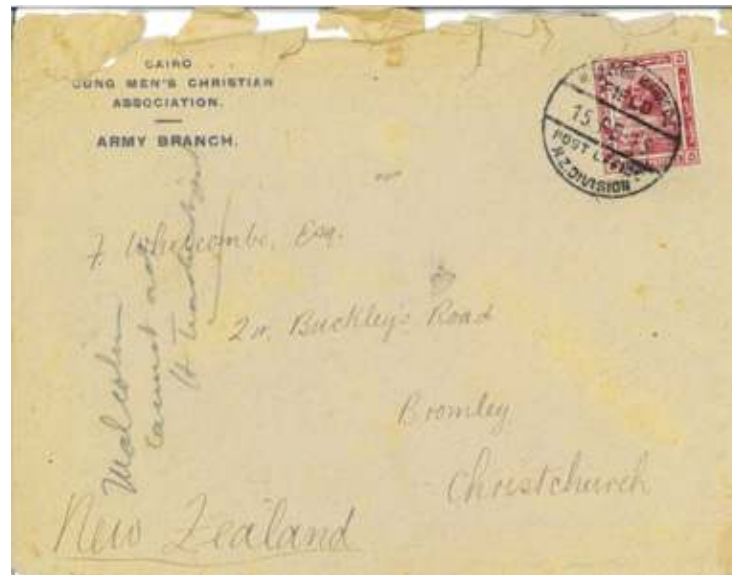 CAIRO
OUNG MEN'S CHRISTIAN
ASSOCIATION.
ARMY BRANCH.
FIELD
15
POST OFFICE
N.Z. DIVISION
F. Whitcombe, Esq.
Buckley's Road
Bromley,
Christchurch
New Zealand
Malcolm
cannot